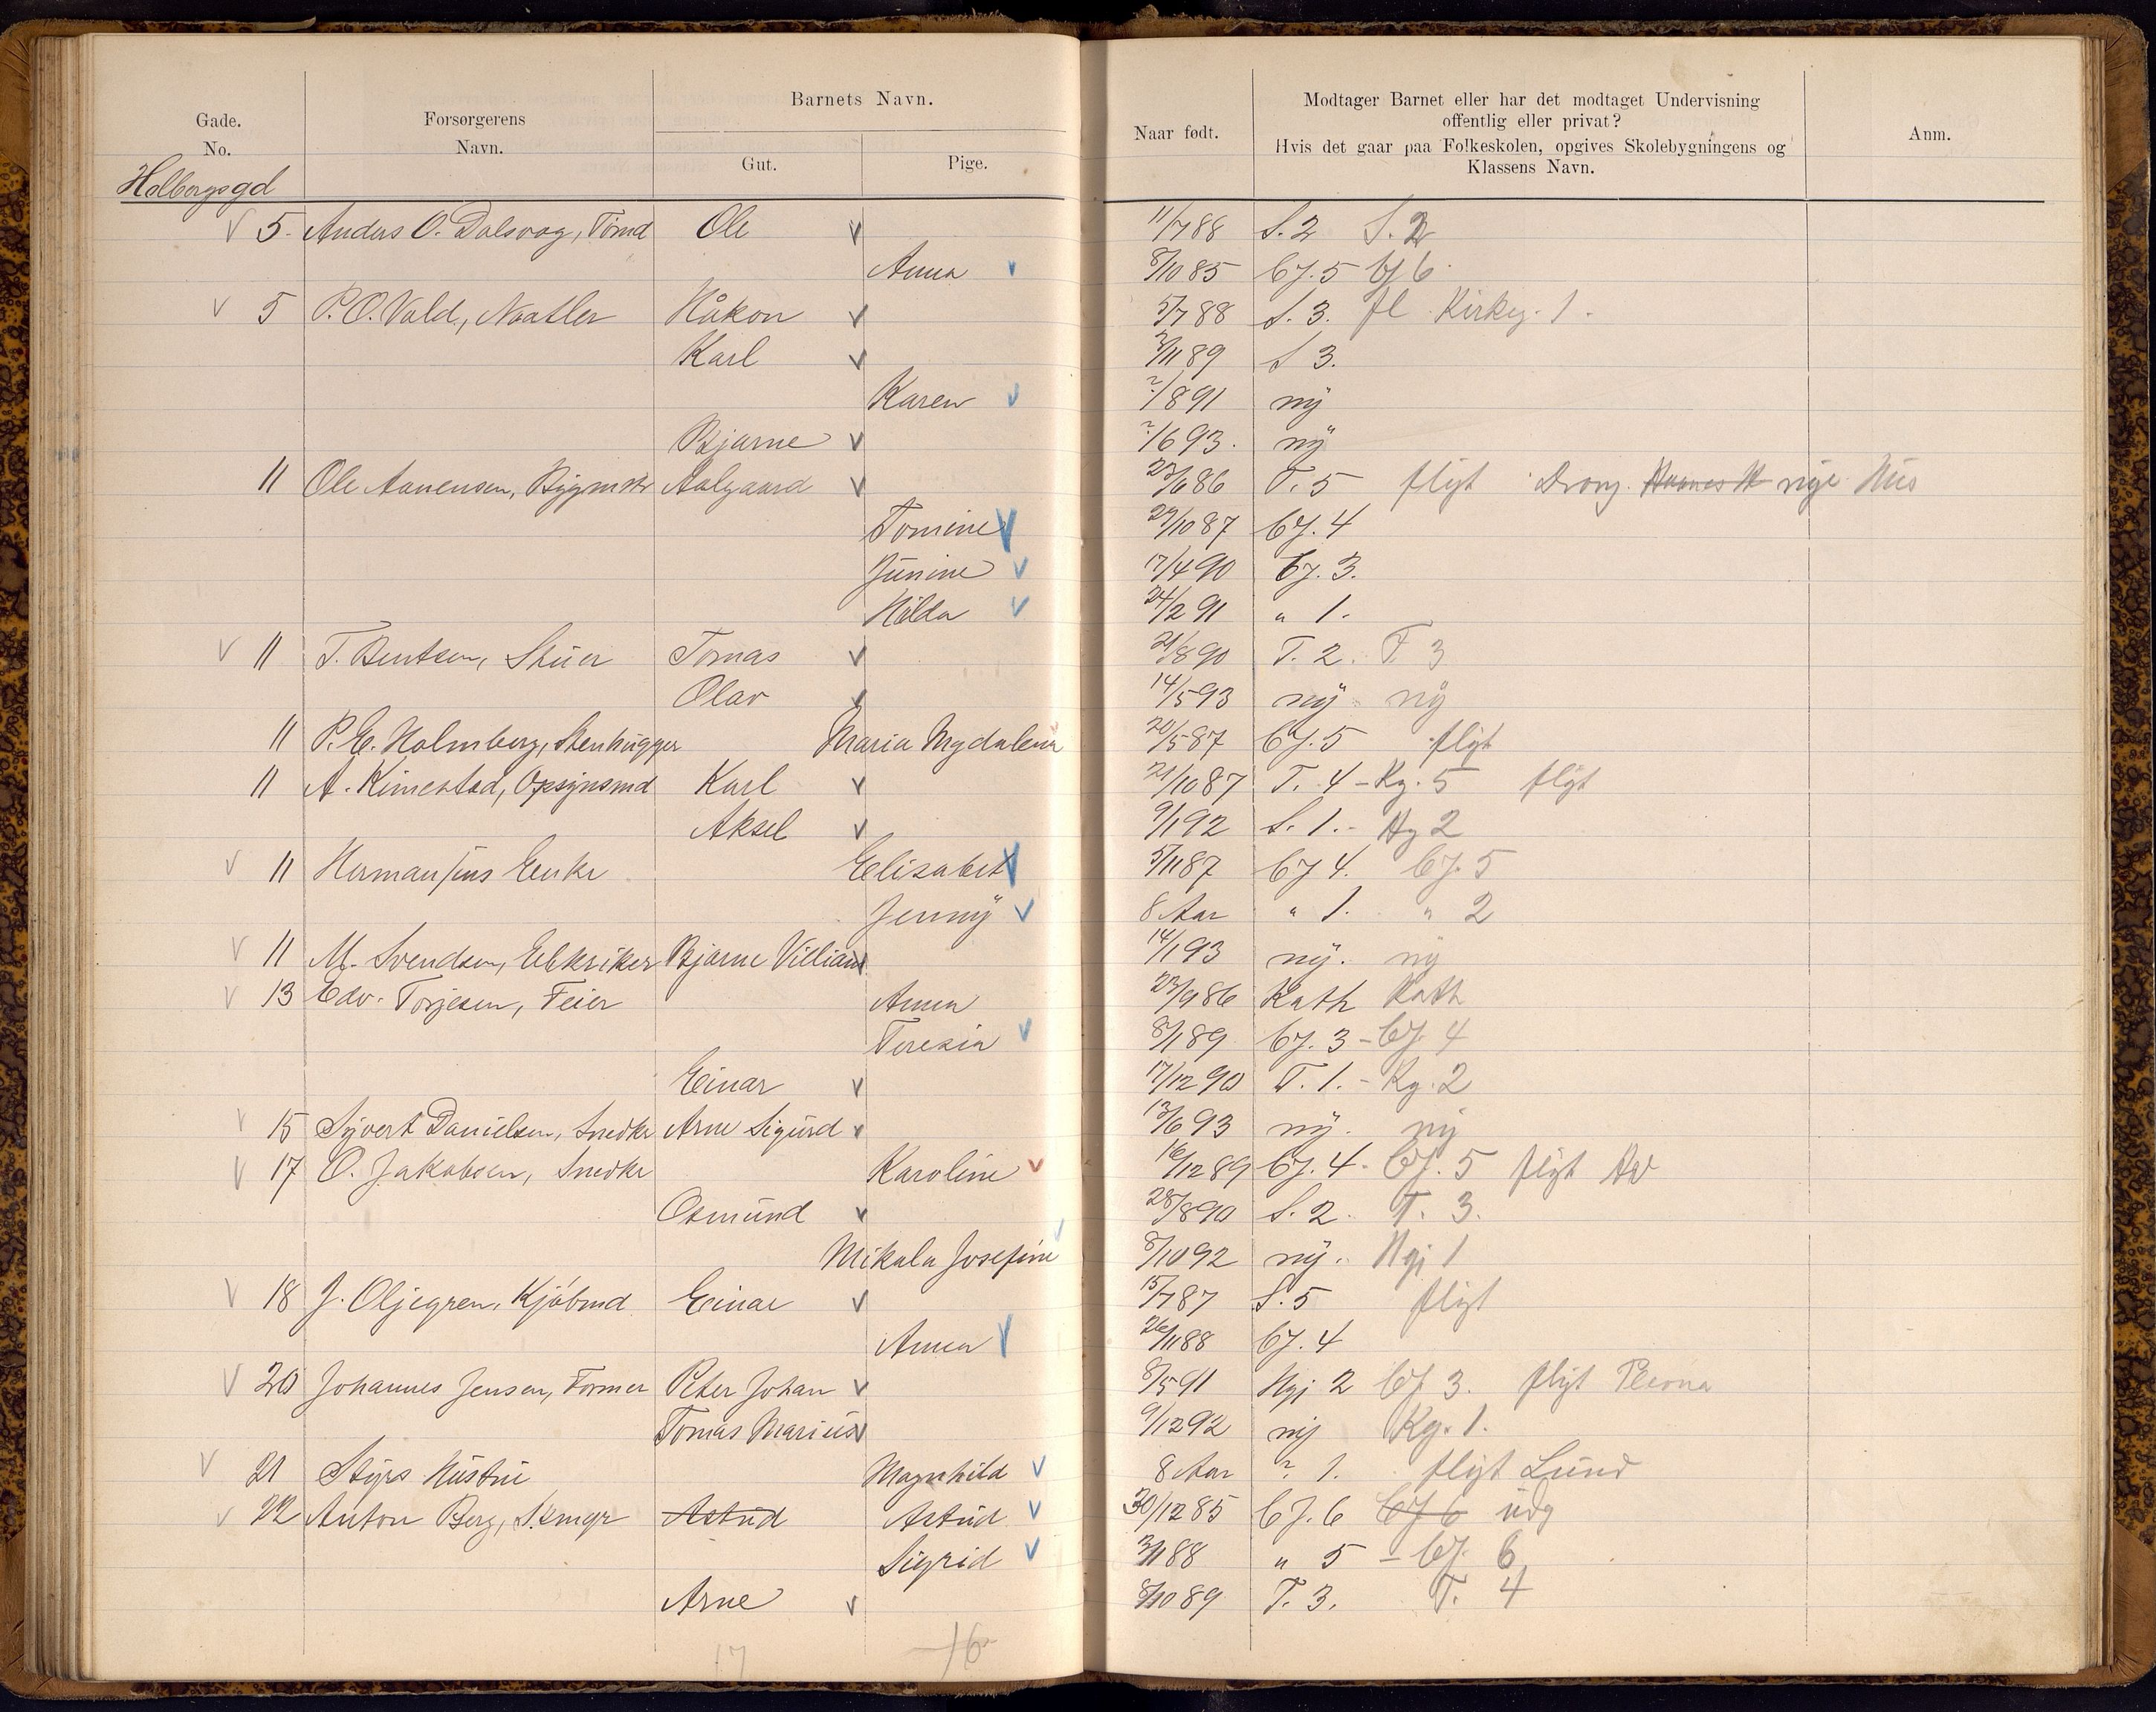 Gade.
No.
Forsørgerens
Navn.
Barnets Navn.
Gut.
Pige.
Naar født.
Modtager Barnet eller har det modtaget Undervisning
offentlig eller privat?
Hvis det gaar paa Folkeskolen, opgives Skolebygningens og
Klassens Navn.
Anm.
Holbergsgd
5. Anders O. Dalsvaag, Tømd Ole 11/7 88 S. 2 S. 2
Anna 8/10 85 Gj. 5 Gj 6
5 P. O. Vold, Haakon 5/7 88 S. 3. fl Kirkeg. 1.
Karl 3/11 89 S 3.
Karen ?/8 91 ny
Bjarne ?/6 93. ny
11 Ole Aanensen, Bygmstr Aalgaard 23/6 86 T. 5 flyt Drong. nye Hus
Tomine 29/10 87 Gj. 4
Junine 17/4 90 Gj. 3.
Hilda 24/2 91 " 1.
11 T. Bentsen, Stuer Tomas 21/8 90 T. 2. T. 3
Olav 14/5 93 ny ny
11 P. E. Holmberg, Stenhugger Maria Mgdalena 20/5 87 Gj. 5 flyt
11 A. Kimestad, Opsynsmd Karl 21/10 87 T. 4 - Kg. 5 flyt
Aksel 9/1 92 S. 1. - Kg 2
11 Hermansens Enke Elisabet 5/11 87 Gj 4. Gj. 5
Jenny 8 Aar " 1. " 2
11 M. Svendsen, Elektriker Bjarne Villiam 14/1 93 ny. ny
13 Edv. Torjesen, Feier Anna 23/9 86 Kath Kath
Teresia 8/1 89 Gj. 3 - Gj. 4
Einar 17/12 90 T. 1. - Kg. 2
15 Syvert Danielsen, Snedkr Arne Sigurd 13/6 93 ny. ny
17 O. Jakobsen, Snedkr Karoline 16/12 89 Gj. 4 - Gj. 5 flyt
Osmund 28/8 90 S. 2. T. 3.
Mikala Josefine 8/10 92 ny. Ngj 1
18 J. Oljegren, Kjøbmd Einar 15/7 87 S. 5 flyt
Anna 26/11 88 Gj. 4
20 Johannes Jensen, Former Peter Johan 8/5 91 Ngj 2 Gj 3. flyt
Tomas Marius 9/12 92 ny Kg. 1.
21 Styrs Hustru Magnhild 8 Aar ? 1. flyt Lund
22 Anton Berg, Astrid Astrid 30/12 85 Gj. 6 Gj 6 udg
Sigrid 3/1 88 " 5 - Gj. 6
Arne 8/10 89 T. 3. T. 4
17 16